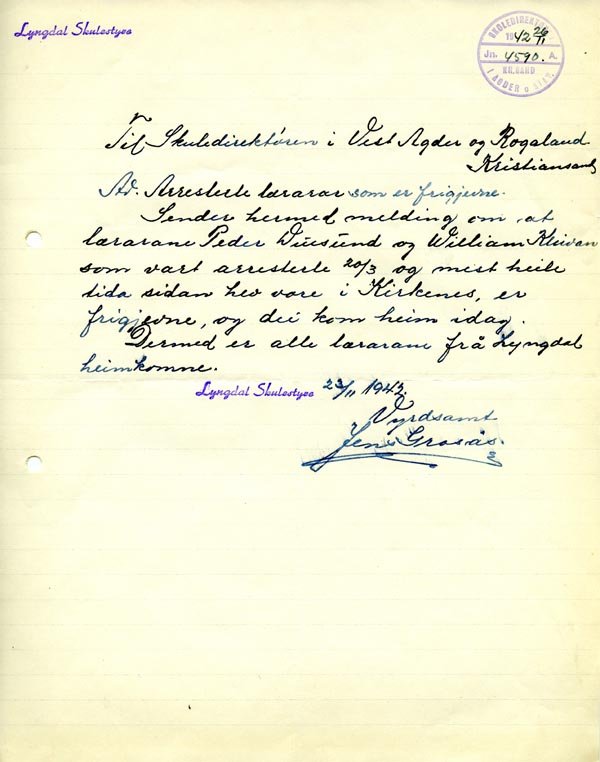 Lyngdal Skulestyre
SKOLEDIREKTØREN
1942 26/11
Jn. 4590. A.
KR.SAND
I AGDER o
Til Skuledirektøren i Vest Agder og Rogaland
Kristiansand
Ad. Arresterte lærarar som er frigjevne.
Sender hermed melding om at
lærarane Peder Duesund og William Kleivan
som vart arresterte 20/3 og mest heile
tida sidan hev vore i Kirkenes, er
frigjevne, og dei kom heim idag.
Dermed er alle lærarane frå Lyngdal
heimkomne.
Lyngdal Skulestyre 23/11 1942.
Vyrdsamt
Jens Grosås.